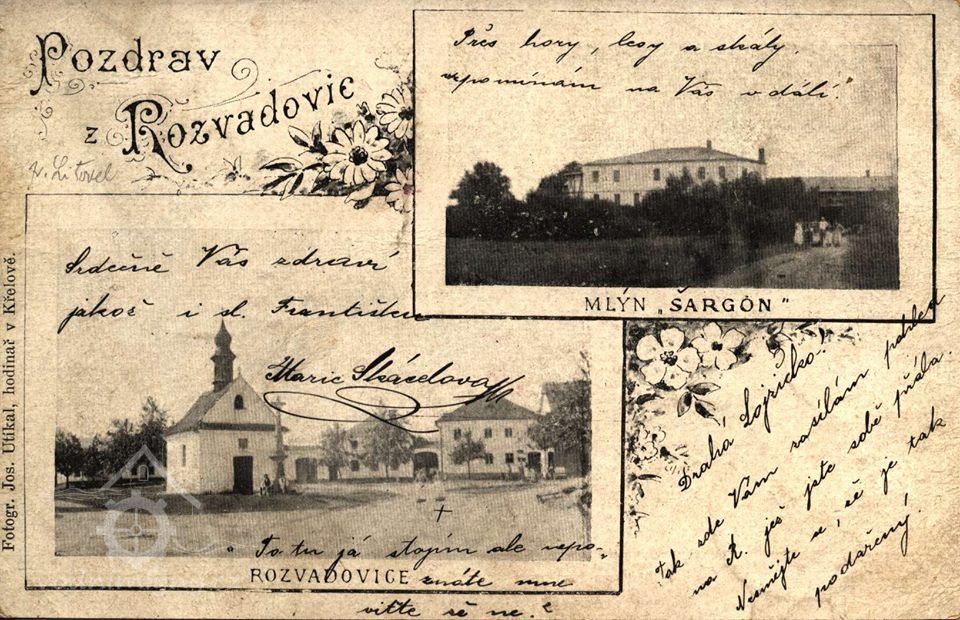 Pozdrav
z Rozvadovic
Přes hory, lesy a skály.
vzpomínám na Vás v dáli!
MLÝN „ŠARGÓN"
Srdečně Vás zdraví
jakož i sl. Františka
Marie Skácelova
To tu já stojím ale nepo-
ROZVADOVICE
znáte mne
viďte sě ne?
Drahá Lojzičko!
Tak zde Vám zasílám pohled
na R. jež jste sobě přála.
Nesmějte se, že je tak
podařený.
Fotogr. Jos. Utíkal, hodinář v Křelově.